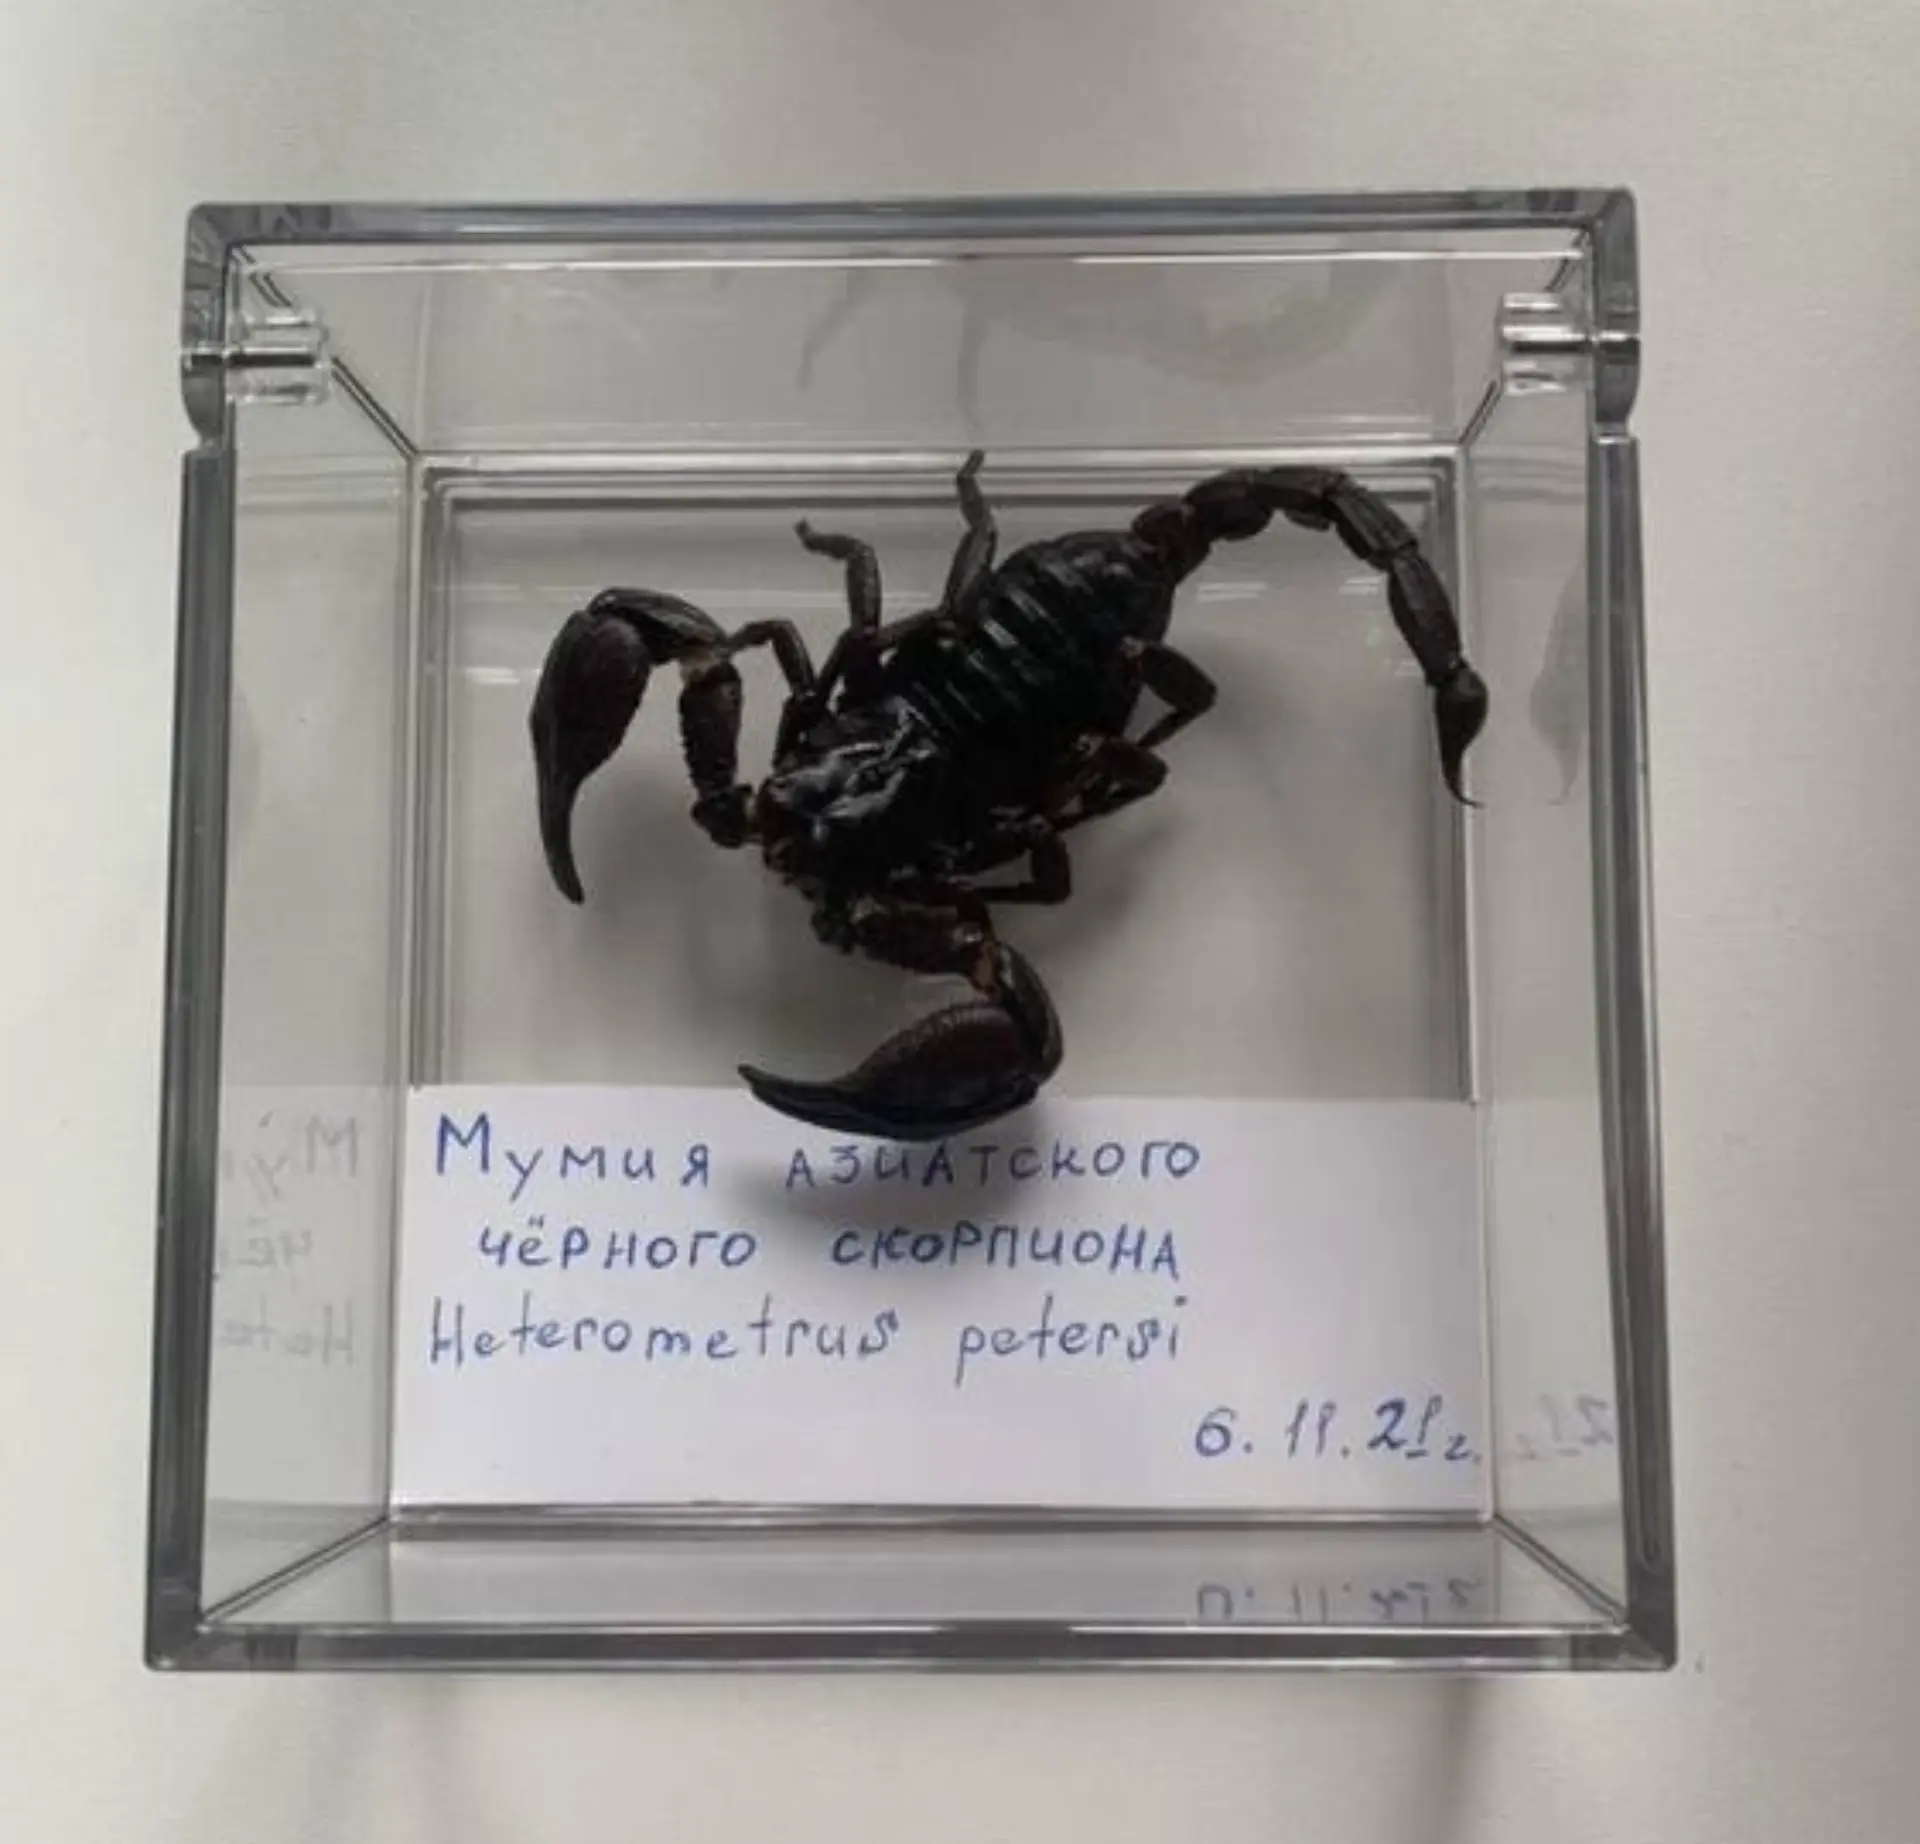 Мумия азиатского
чёрного скорпиона
Heterometrus petersi
6.11.21г.